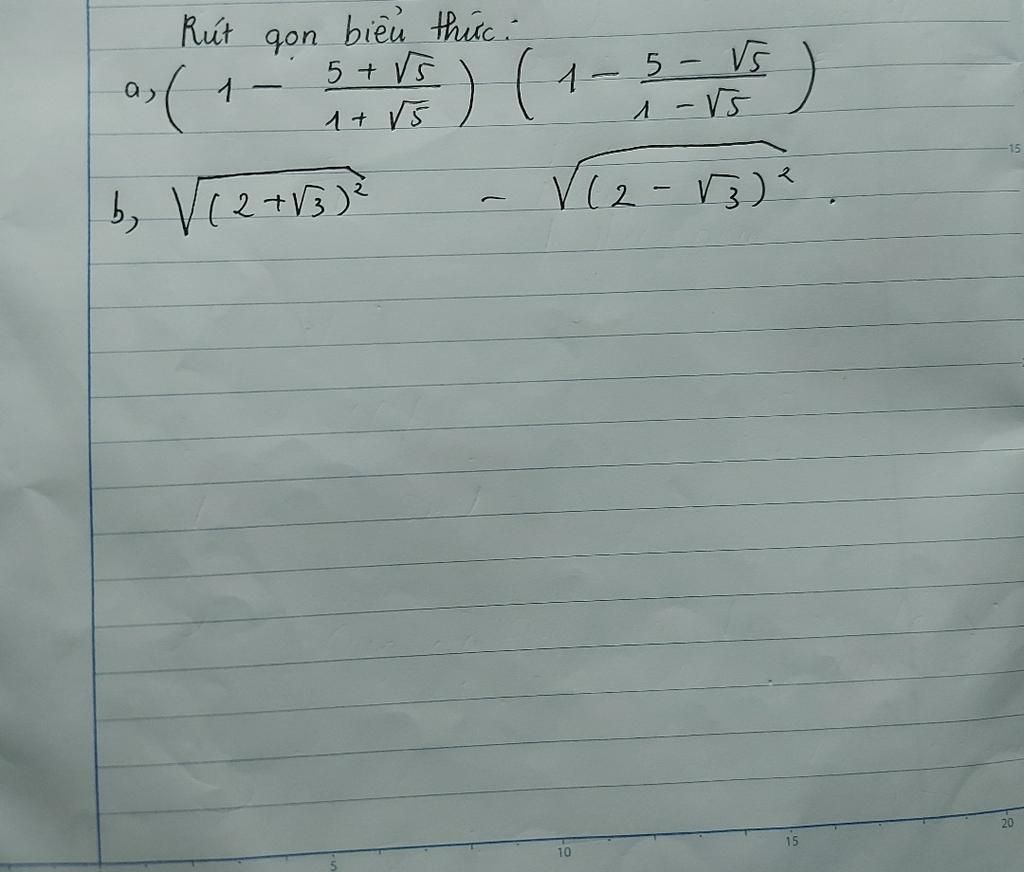 Rút gọn biểu thức:
a, ( 1 - \frac{5 + √5}{1 + √5} ) ( 1 - \frac{5 - √5}{1 - √5} )
b, √(2 + √3)² - √(2 - √3)² .
15
5 10 15 20